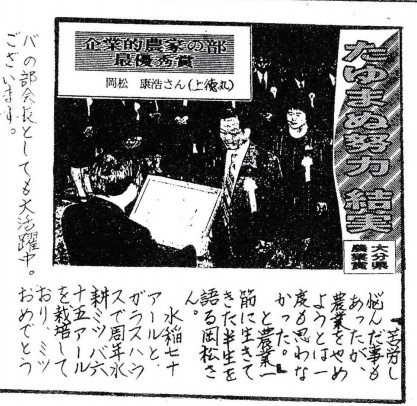 たゆまぬ努力 結実
大分県
農業賞
企業的農家の部
最優秀賞
岡松 康浩さん(上徳丸)
「苦労し
悩んだ事も
あったが、
農業をやめ
ようとは一
度も思わな
かった。」
と農業一
筋に生きて
きた半生を
語る岡松さ
ん。
水稲七十
アールと、
ガラスハウ
スで周年水
耕ミツバ六
十五アール
を栽培して
おり、ミツ
バの部会長としても大活躍中。おめでとう
ございます。